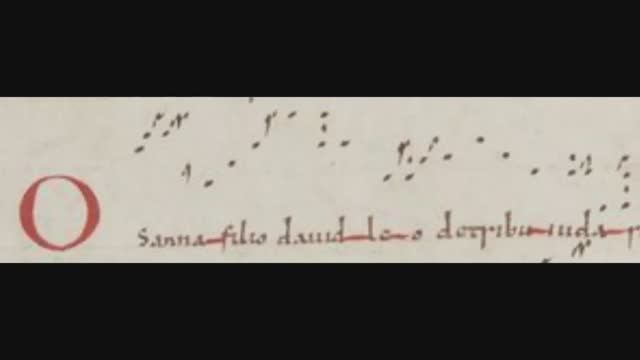 O sanna filio dauid leo detribu iuda